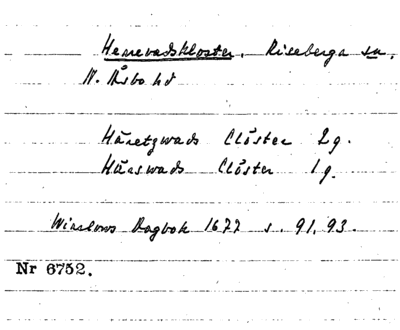 Herrevadskloster, Riseberga sn,
N. Åsbo hd
Häretzwads Clöster 2 g.
Härswads Clöster 1 g.
Winslows Dagbok 1677 s. 91, 93.
Nr 6752.